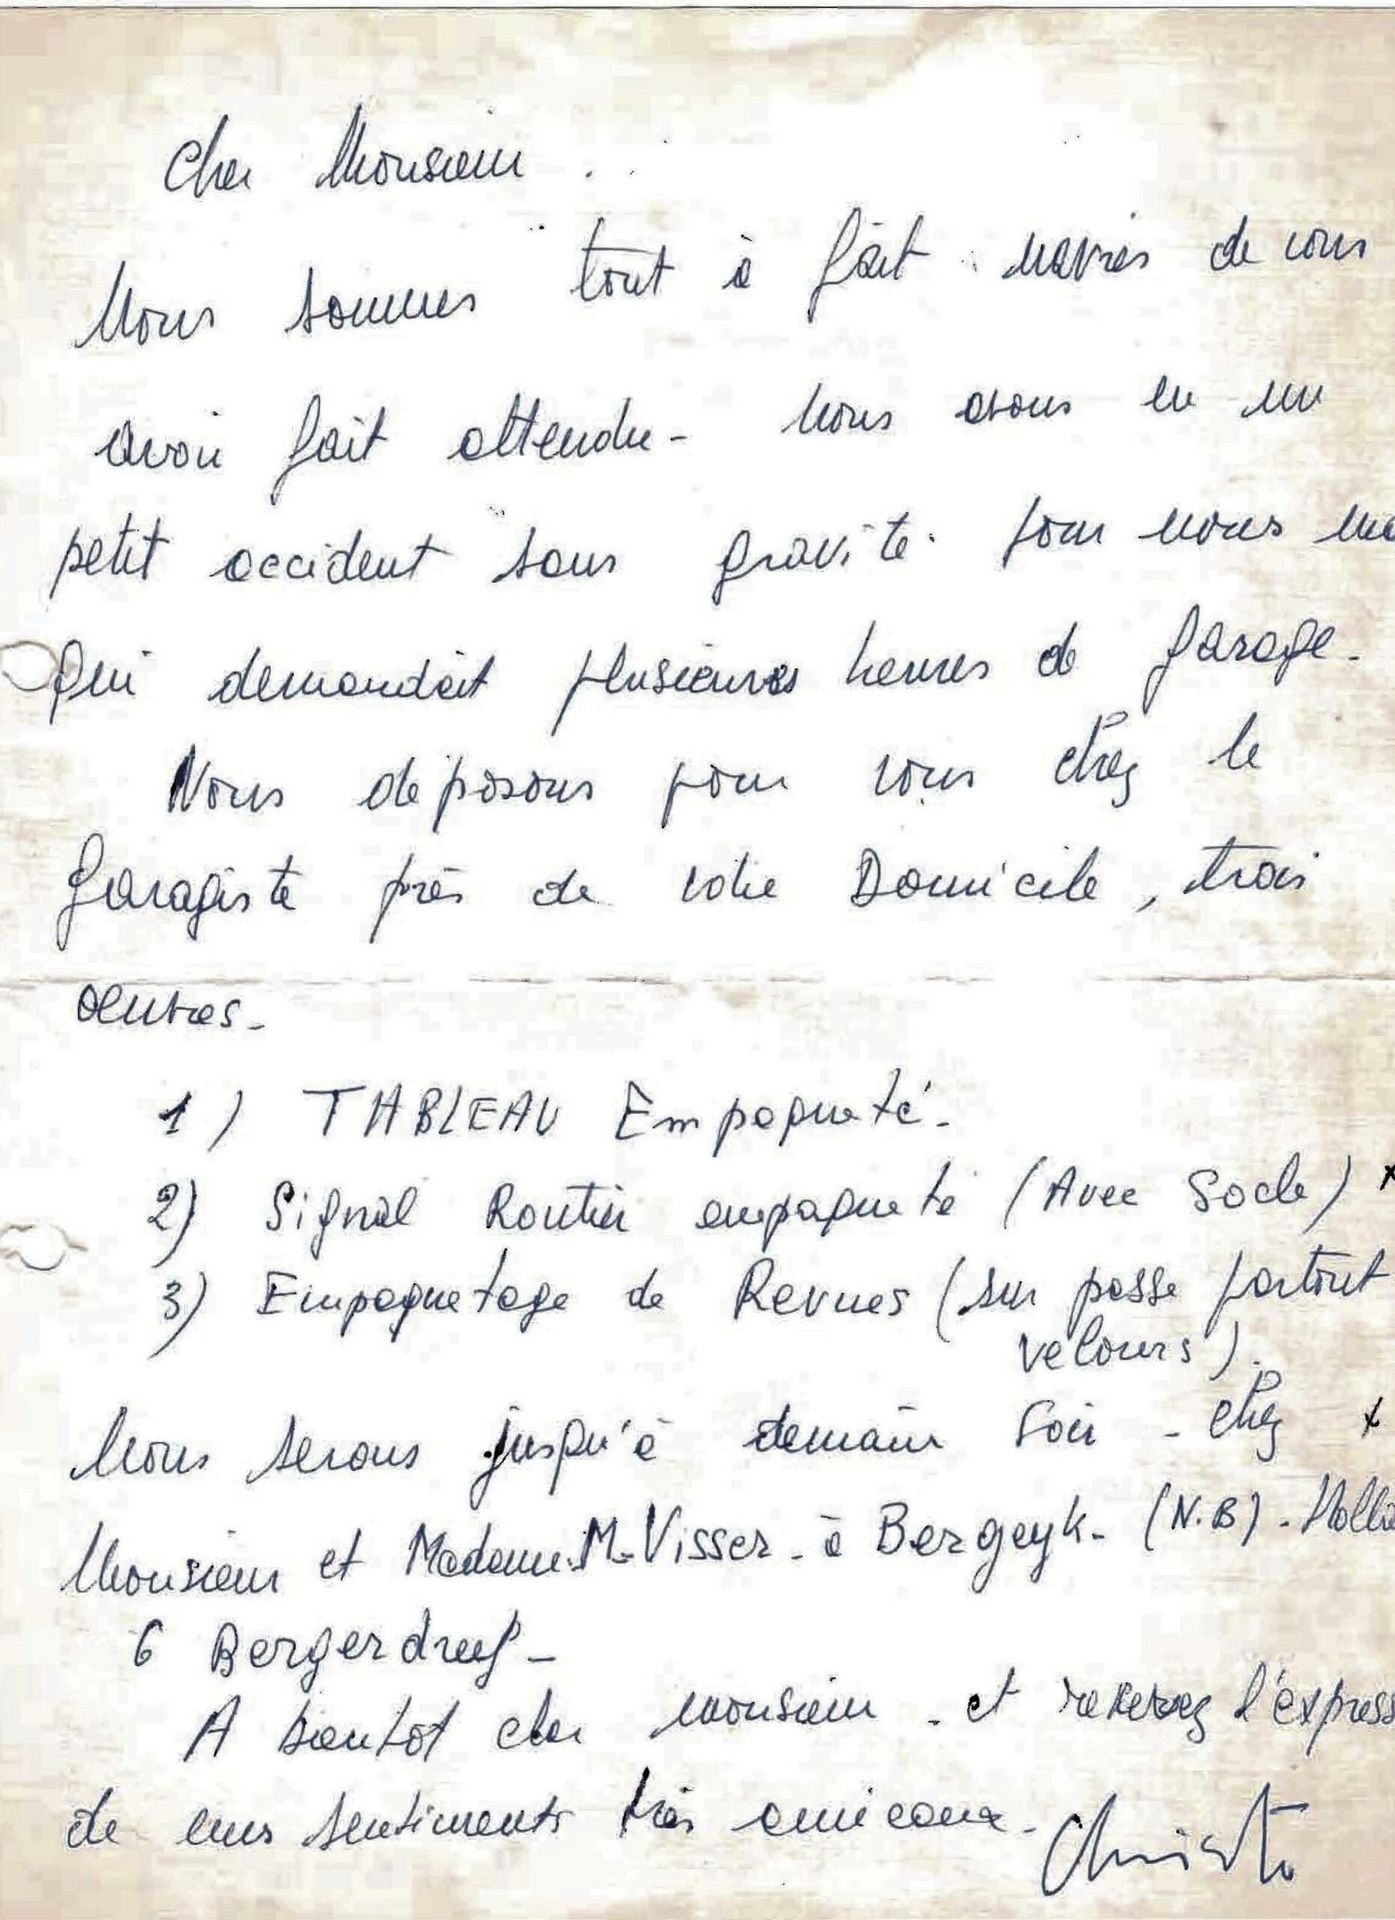 Cher Monsieur.
Nous sommes tout à fait navrés de vous
avoir fait attendre - Nous avons eu un
petit accident sans gravité. pour nous ma
qui demandait plusieures heures de garage.
Nous déposons pour vous chez le
garagiste près de votre Domicile, trois
œuvres -
1) TABLEAU Empaqueté -
2) Signal Routier empaqueté (Avec Socle) x
3) Empaquetage de Revues (sur passe partout
velours).
Nous serons jusqu'à demain soir - chez x
Monsieur et Madame M. Visser - à Bergeyk - (N.B) - Holla
6 Bergerdreef -
A bientot cher monsieur - et recevez l'express
de mes sentiments très amicaux -
Christo